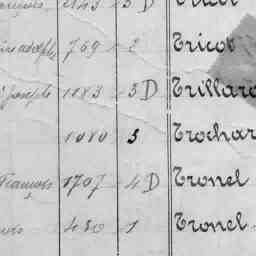 2 Tricot
769 2 Tricot
Joseph 1183 3 D Trillard
1010 3 Trochar
François 1707 4 D Tronel
480 1 Tronel